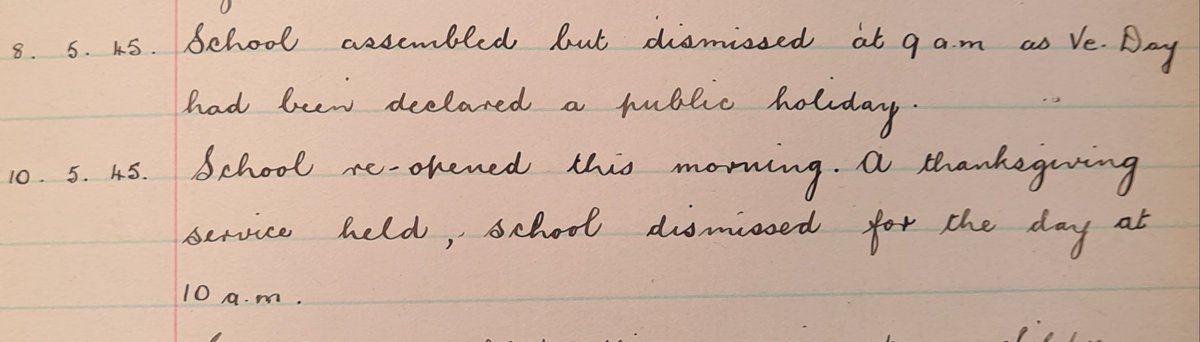 8. 5. 45. School assembled but dismissed at 9 a.m as Ve. Day
had been declared a public holiday.
10. 5. 45. School re-opened this morning. A thanksgiving
service held, school dismissed for the day at
10 a.m.